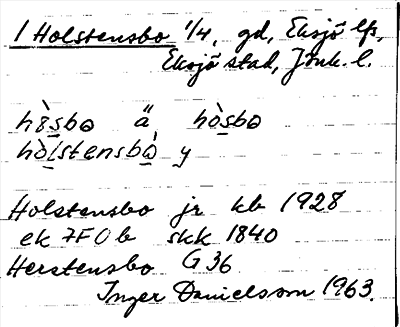 1 Holstensbo 1/4, gd, Eksjö lfs,
Eksjö stad, Jönk. l.
hò̤sbo ä hòsbo
hòlstensbò y
Holstensbo jr kb 1928
ek 7F0b skk 1840
Herstensbo G36
Inger Danielsson 1963.